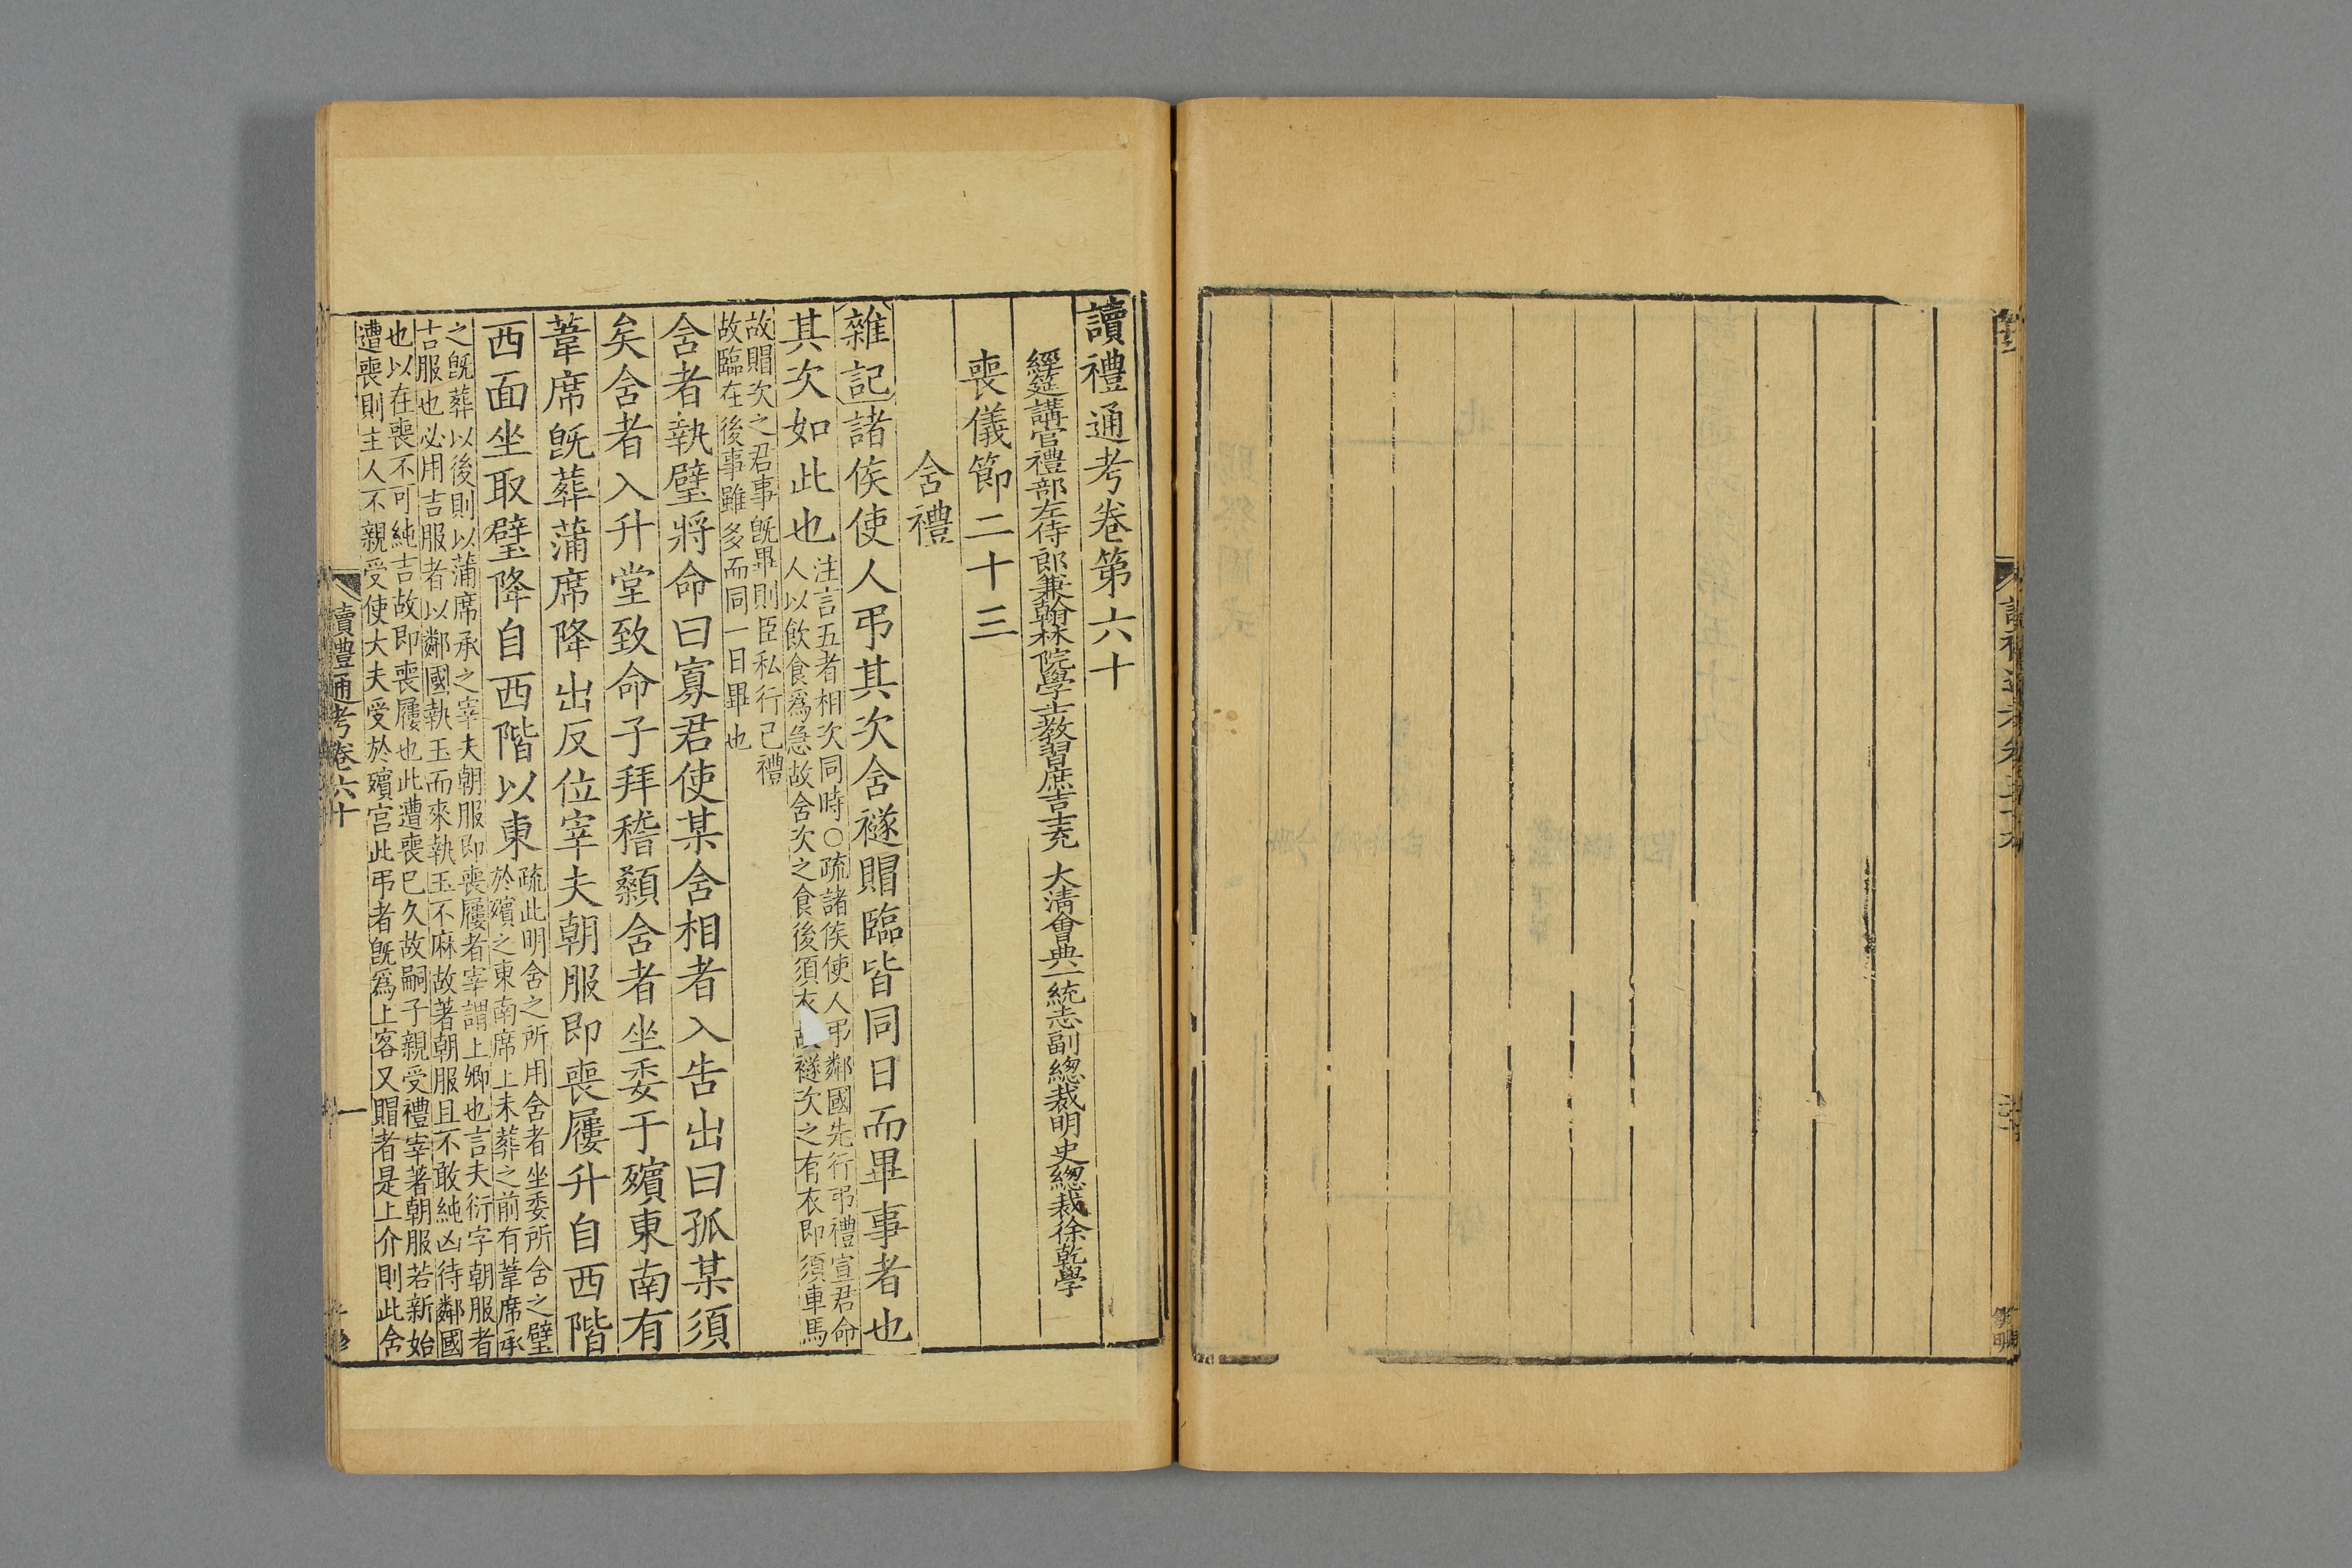 讀禮通考卷第六十
經筵講官禮部左侍郎兼翰林院學士教習庶吉士充 大淸會典一統志副總裁明史總裁徐乾學
喪儀節二十三
含禮
雜記諸侯使人弔其次含襚賵臨皆同日而畢事者也
其次如此也
注言五者相次同時○疏諸侯使人弔鄰國先行弔禮宣君命
人以飲食爲急故含次之食後須衣故襚次之有衣卽須車馬
故賵次之君事旣畢則臣私行己禮
故臨在後事雖多而同一日畢也
含者執璧將命曰寡君使某含相者入告出曰孤某須
矣含者入升堂致命子拜稽顙含者坐委于殯東南有
葦席旣葬蒲席降出反位宰夫朝服卽喪屨升自西階
西面坐取璧降自西階以東
疏此明含之所用含者坐委所含之璧
於殯之東南席上未葬之前有葦席承
之旣葬以後則以蒲席承之宰夫朝服卽喪屨者宰謂上卿也言夫衍字朝服者
吉服也必用吉服者以鄰國執玉而來執玉不麻故著朝服且不敢純凶待鄰國
也以在喪不可純吉故卽喪屨也此遭喪已久故嗣子親受禮宰著朝服若新始
遭喪則主人不親受使大夫受於殯宮此弔者旣爲上客又賵者是上介則此含
讀禮通考卷六十
一